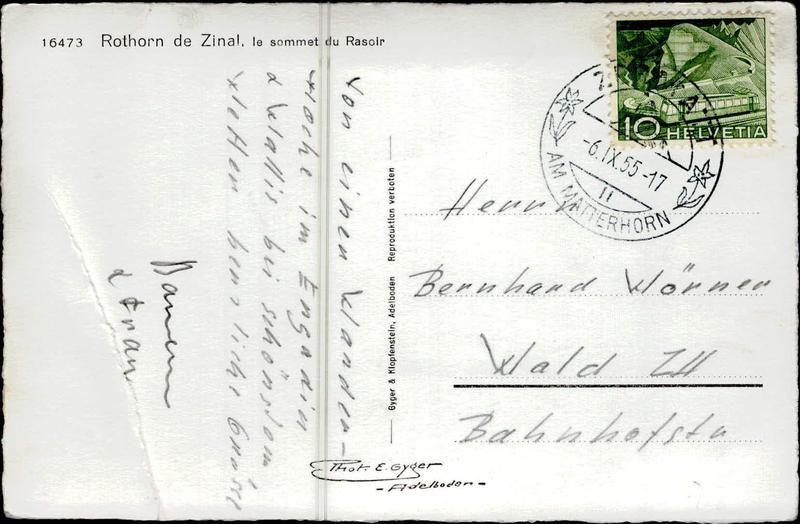 16473 Rothorn de Zinal, le sommet du Rasoir
Von einen Wander-
woche im Engadin
& Wallis bei schönstem
Wetter herzliche Grüsse
& Frau
Gyger & Klopfenstein, Adelboden Reproduktion verboten
Phot. E. Gyger
- Adelboden -
10 HELVETIA
-6.IX.55-17
11
AM MATTERHORN
Herrn
Bernhard Wörner
Wald ZH
Bahnhofstr